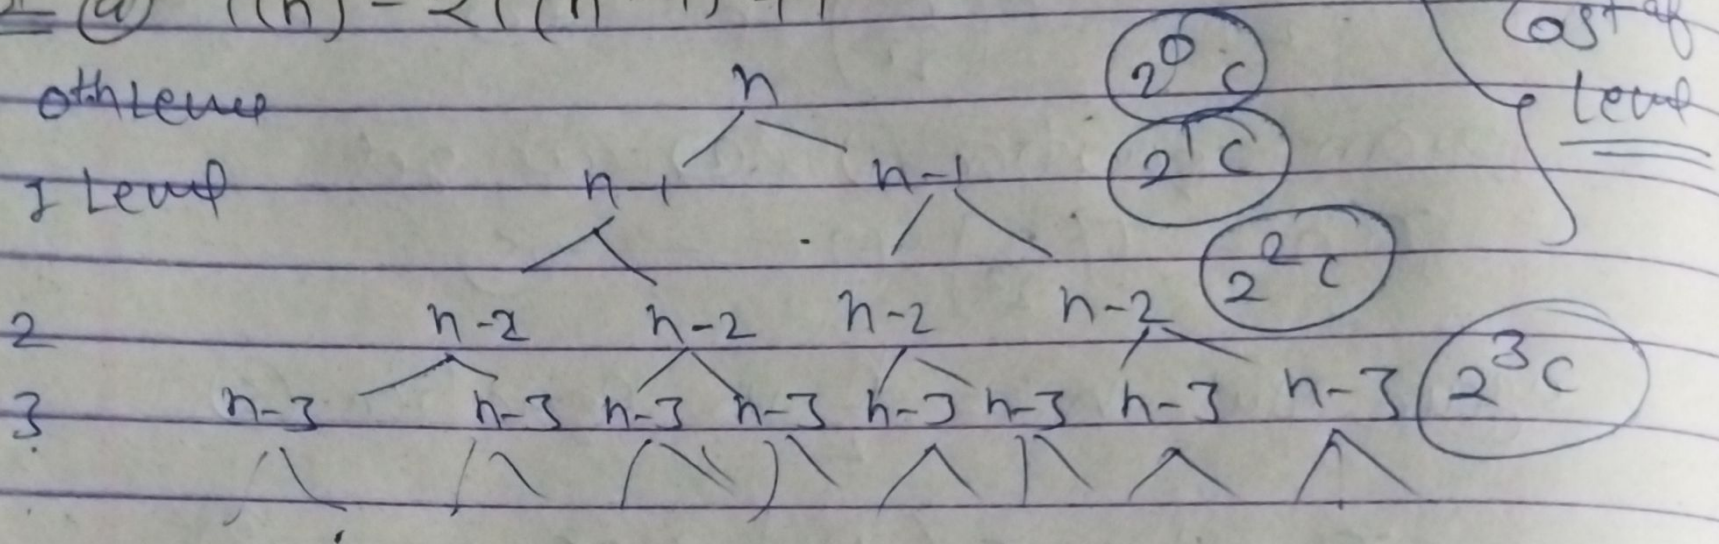 (a) T(n) = 2T(n-1) + 1
Cost of
0th Level n 2^0 c Level
I Level n-1 n-1 2^1 c
2 n-2 n-2 n-2 n-2 2^2 c
3 n-3 n-3 n-3 n-3 n-3 n-3 n-3 n-3 2^3 c